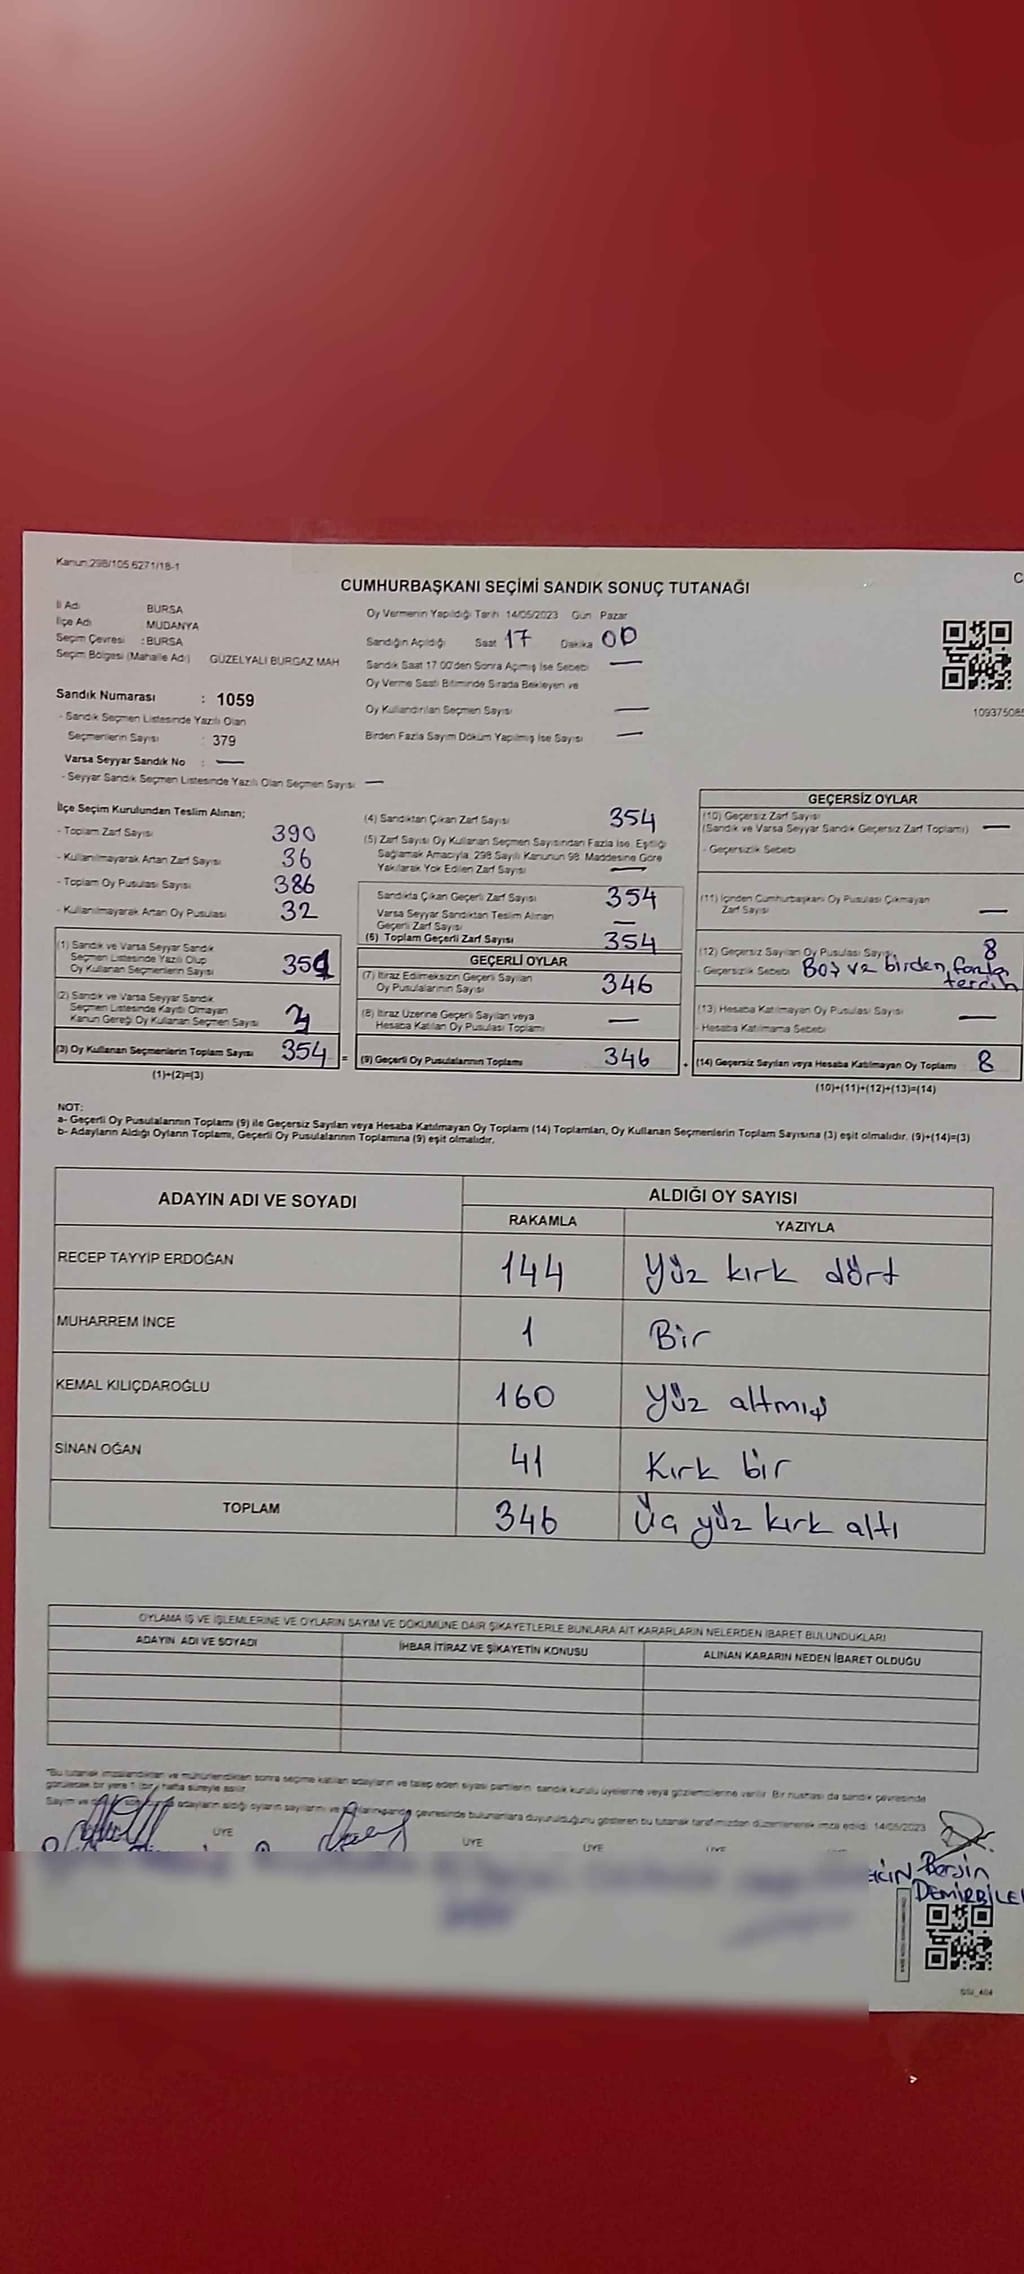 Kanun:298/105 6271/18-1
CUMHURBAŞKANI SEÇİMİ SANDIK SONUÇ TUTANAĞI
İl Adı BURSA
İlçe Adı MUDANYA
Seçim Çevresi : BURSA
Seçim Bölgesi (Mahalle Adı) GÜZELYALI BURGAZ MAH
Sandık Numarası : 1059
- Sandık Seçmen Listesinde Yazılı Olan
Seçmenlerin Sayısı : 379
Varsa Seyyar Sandık No : —
- Seyyar Sandık Seçmen Listesinde Yazılı Olan Seçmen Sayısı —
Oy Vermenin Yapıldığı Tarih 14/05/2023 Gün Pazar
Sandığın Açıldığı Saat 17 Dakika 00
Sandık Saat 17 00'den Sonra Açılmış İse Sebebi —
Oy Verme Saati Bitiminde Sırada Bekleyen ve
Oy Kullandırılan Seçmen Sayısı —
Birden Fazla Sayım Döküm Yapılmış İse Sayısı —
109375085
İlçe Seçim Kurulundan Teslim Alınan;
- Toplam Zarf Sayısı 390
- Kullanılmayarak Artan Zarf Sayısı 36
- Toplam Oy Pusulası Sayısı 386
- Kullanılmayarak Artan Oy Pusulası 32
(1) Sandık ve Varsa Seyyar Sandık
Seçmen Listesinde Yazılı Olup
Oy Kullanan Seçmenlerin Sayısı
(2) Sandık ve Varsa Seyyar Sandık
Seçmen Listesinde Kayıtlı Olmayan
Kanun Gereği Oy Kullanan Seçmen Sayısı
(3) Oy Kullanan Seçmenlerin Toplam Sayısı 354 =
(1)+(2)=(3)
(4) Sandıktan Çıkan Zarf Sayısı 354
(5) Zarf Sayısı Oy Kullanan Seçmen Sayısından Fazla İse, Eşitliği
Sağlamak Amacıyla, 298 Sayılı Kanunun 98. Maddesine Göre
Yakılarak Yok Edilen Zarf Sayısı —
Sandıkta Çıkan Geçerli Zarf Sayısı 354
Varsa Seyyar Sandıktan Teslim Alınan
Geçerli Zarf Sayısı —
(6) Toplam Geçerli Zarf Sayısı 354
GEÇERLİ OYLAR
(7) İtiraz Edilmeksizin Geçerli Sayılan
Oy Pusulalarının Sayısı 346
(8) İtiraz Üzerine Geçerli Sayılan veya
Hesaba Katılan Oy Pusulası Toplamı —
(9) Geçerli Oy Pusulalarının Toplamı 346 +
GEÇERSİZ OYLAR
(10) Geçersiz Zarf Sayısı
(Sandık ve Varsa Seyyar Sandık Geçersiz Zarf Toplamı) —
- Geçersizlik Sebebi
(11) İçinden Cumhurbaşkanı Oy Pusulası Çıkmayan
Zarf Sayısı —
(12) Geçersiz Sayılan Oy Pusulası Sayısı 8
- Geçersizlik Sebebi Boş ve birden fazla
tercih
(13) Hesaba Katılmayan Oy Pusulası Sayısı —
- Hesaba Katılmama Sebebi
(14) Geçersiz Sayılan veya Hesaba Katılmayan Oy Toplamı 8
(10)+(11)+(12)+(13)=(14)
NOT:
a- Geçerli Oy Pusulalarının Toplamı (9) ile Geçersiz Sayılan veya Hesaba Katılmayan Oy Toplamı (14) Toplamları, Oy Kullanan Seçmenlerin Toplam Sayısına (3) eşit olmalıdır. (9)+(14)=(3)
b- Adayların Aldığı Oyların Toplamı, Geçerli Oy Pusulalarının Toplamına (9) eşit olmalıdır.
ADAYIN ADI VE SOYADI ALDIĞI OY SAYISI
RAKAMLA YAZIYLA
RECEP TAYYİP ERDOĞAN 144 Yüz kırk dört
MUHARREM İNCE 1 Bir
KEMAL KILIÇDAROĞLU 160 Yüz altmış
SİNAN OĞAN 41 Kırk bir
TOPLAM 346 Üç yüz kırk altı
OYLAMA İŞ VE İŞLEMLERİNE VE OYLARIN SAYIM VE DÖKÜMÜNE DAİR ŞİKAYETLERLE BUNLARA AİT KARARLARIN NELERDEN İBARET BULUNDUKLARI
ADAYIN ADI VE SOYADI İHBAR İTİRAZ VE ŞİKAYETİN KONUSU ALINAN KARARIN NEDEN İBARET OLDUĞU
*Bu tutanak imzalandıktan ve mühürlendikten sonra seçime katılan adayların ve talep eden siyasi partilerin sandık kurulu üyelerine veya gözlemcilerine verilir. Bir nüshası da sandık çevresinde
görülecek bir yere 1 (bir) hafta süreyle asılır.
Sayım ve adayların aldığı oyların sayılarını ve çevresinde bulunanlara duyurulduğunu gösteren bu tutanak tarafımızdan düzenlenerek imza edildi. 14/05/2023
ÜYE ÜYE ÜYE ÜYE
DEMİRBİLE